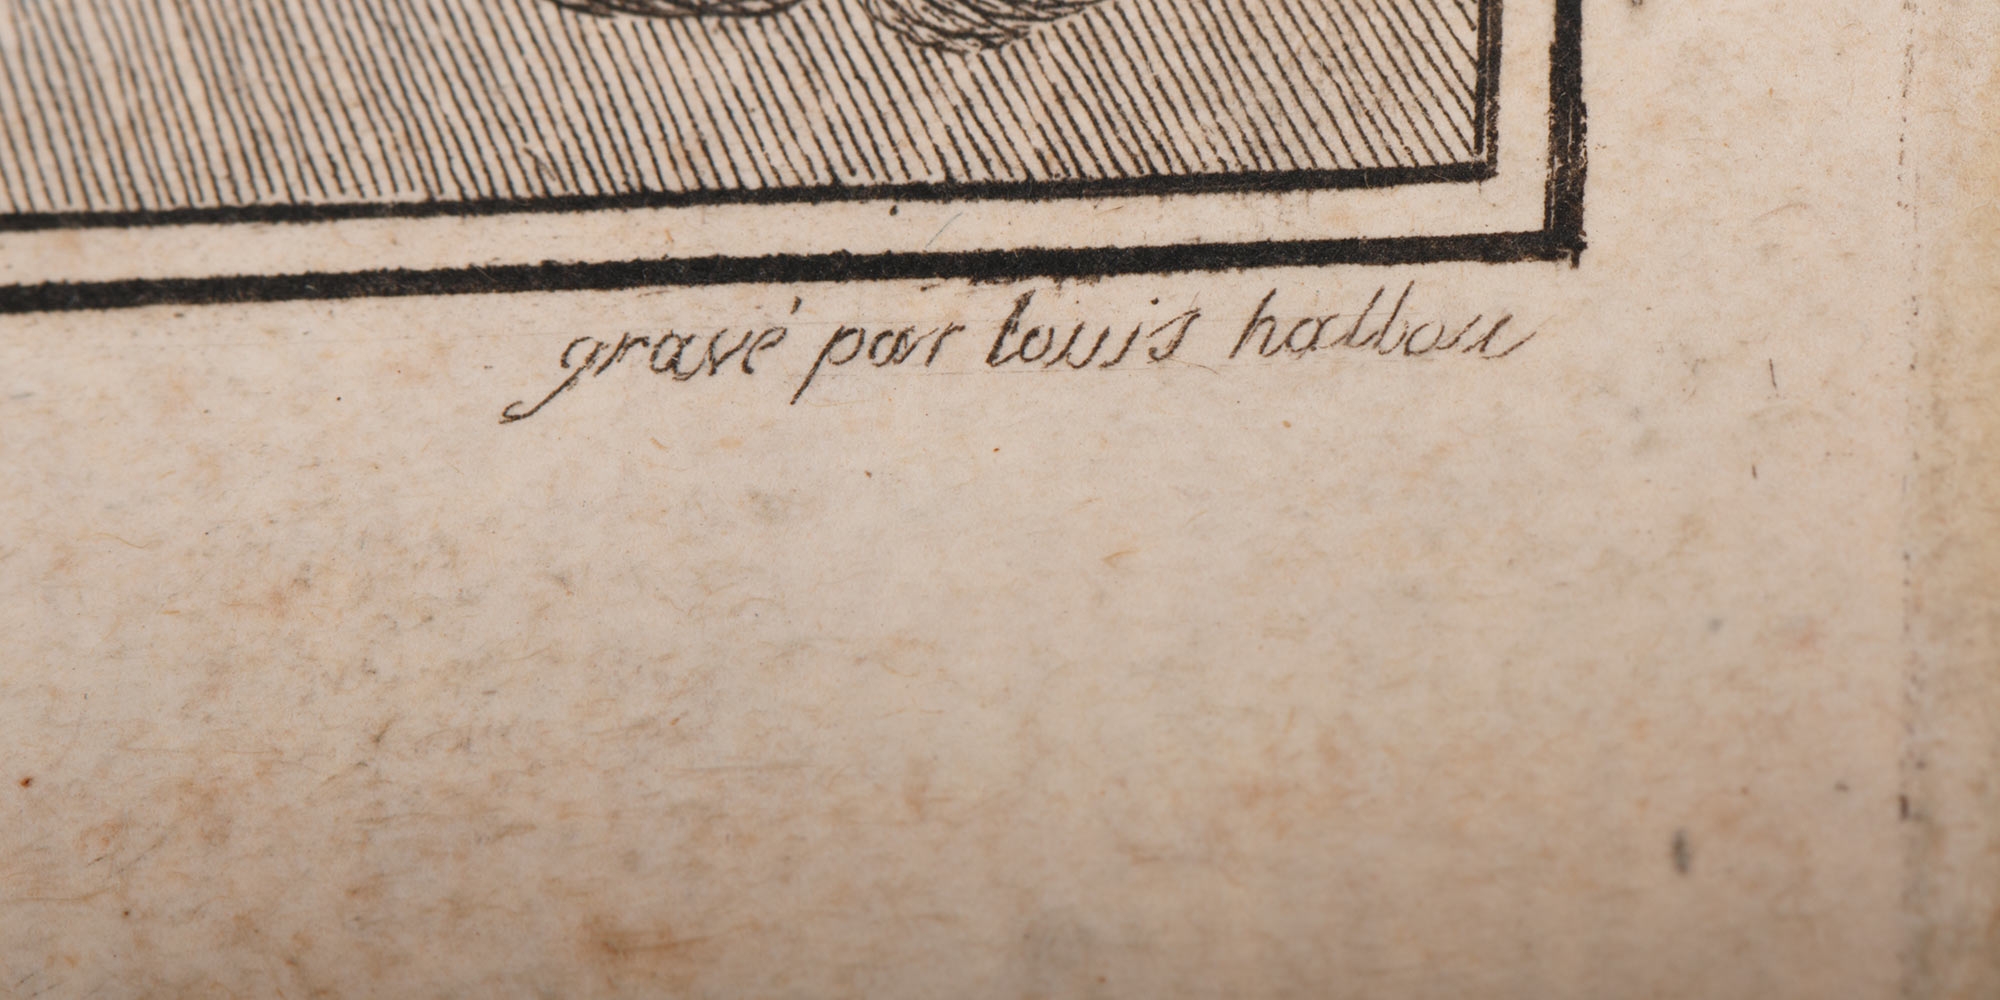 gravé par louis halbou